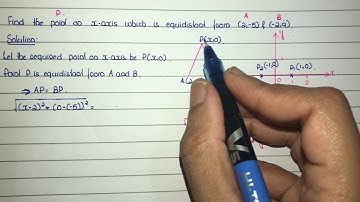 P.
A
B
Find the point on x-axis which is equidistant from (2,-5) & (-2,9).
Solution:
P(x,0)
y
Let the required point on x-axis be P(x,0).
A(2,
P₂(-1,0)
P₁(1,0)
Point P is equidistant from A and B.
⇒ AP = BP.
√(x-2)² + (0-(-5))² =